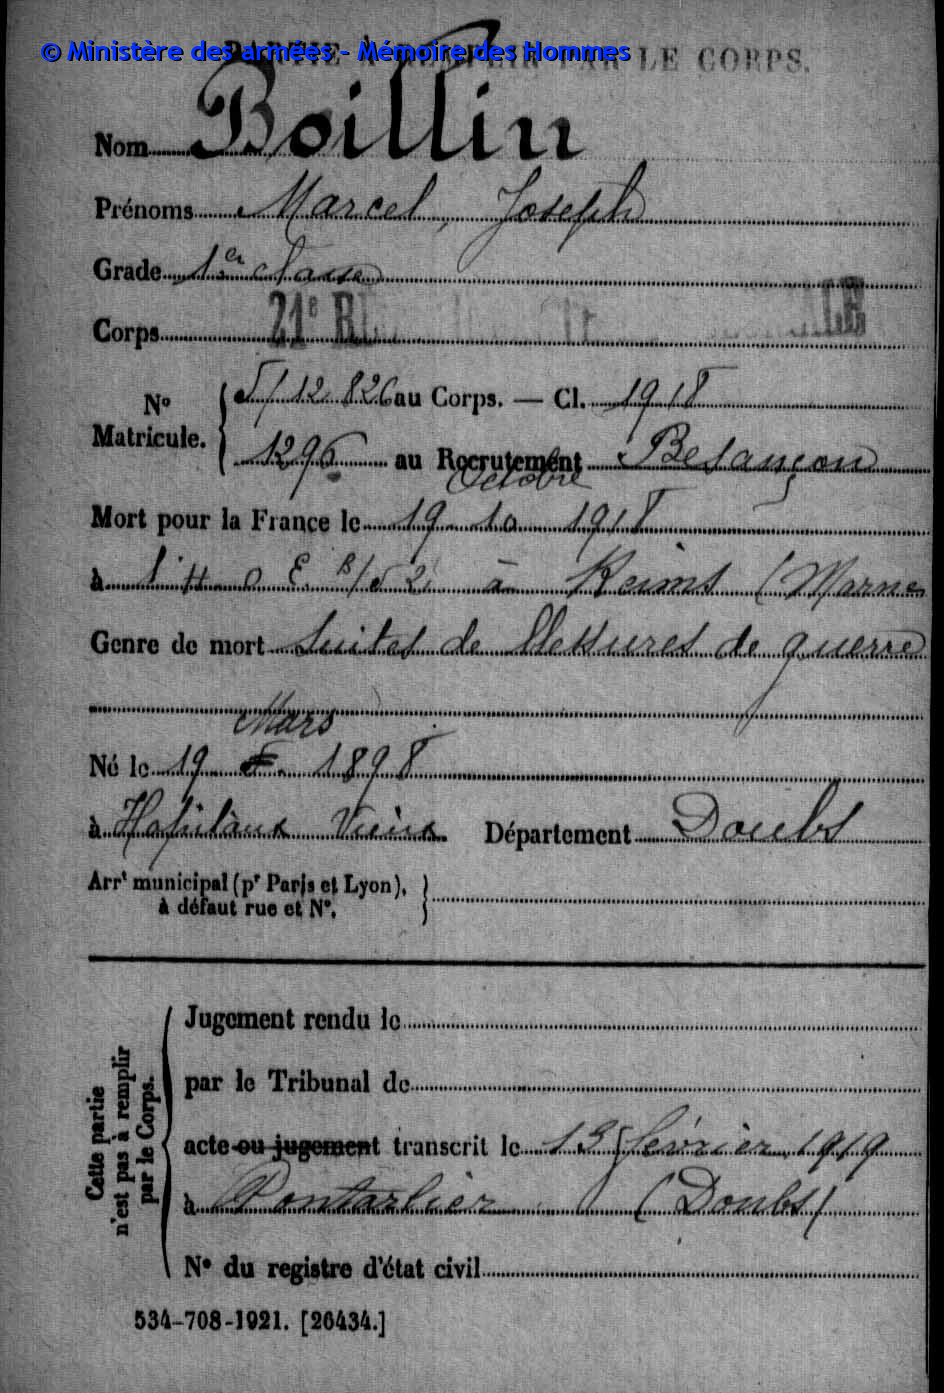 © Ministère des armées - Mémoire des Hommes
PARTIE À REMPLIR PAR LE CORPS.
Nom Boillin
Prénoms Marcel, Joseph
Grade 1er classe
Corps 21e
No Matricule. { 5/12 826 au Corps. — Cl. 1918
1296 au Recrutement Besançon
Octobre
Mort pour la France le 19 10 1918
à l'H O E B/52 à Reims (Marne
Genre de mort Suites de blessures de guerre
Mars
Né le 19 1898
à Hopitaux Vieux Département Doubs
Arrt municipal (pr Paris et Lyon),
à défaut rue et No.
Cette partie n'est pas à remplir par le Corps.
Jugement rendu le
par le Tribunal de
acte ou jugement transcrit le 13 février 1919
à Pontarlier (Doubs)
No du registre d'état civil
534-708-1921. [26434.]